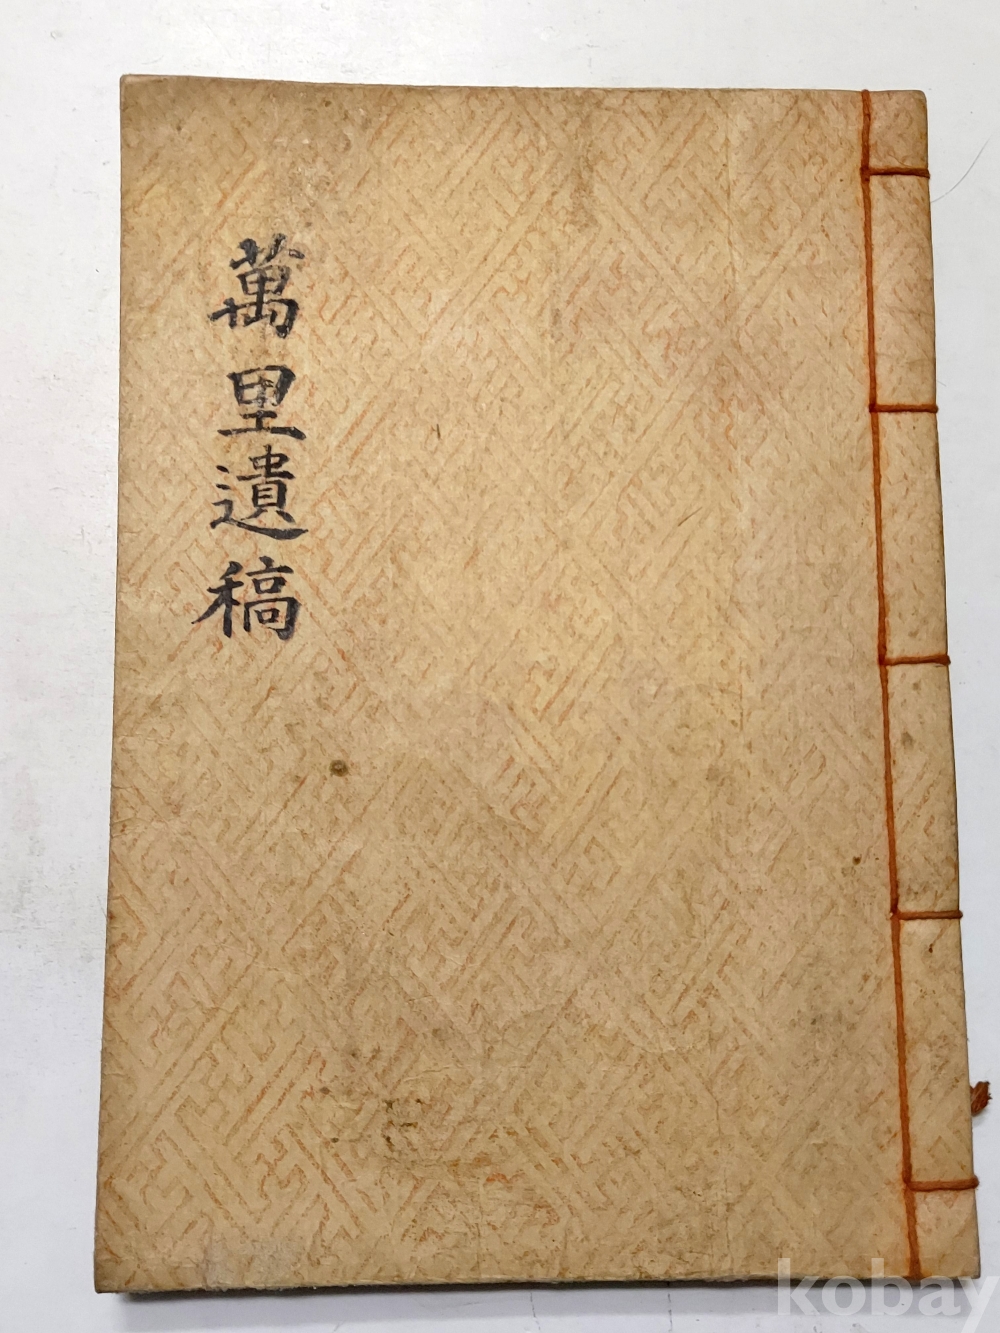 萬里遺稿
kobay